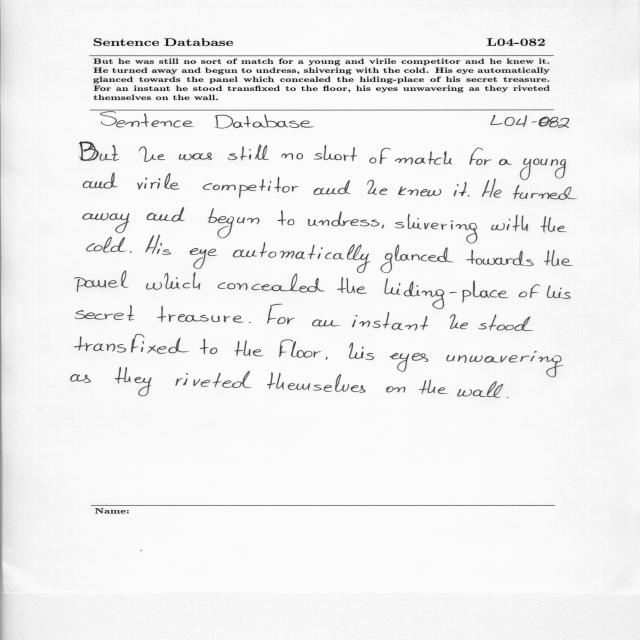 Sentence Database L04-082
But he was still no sort of match for a young and virile competitor and he knew it.
He turned away and begun to undress, shivering with the cold. His eye automatically
glanced towards the panel which concealed the hiding-place of his secret treasure.
For an instant he stood transfixed to the floor, his eyes unwavering as they riveted
themselves on the wall.
Sentence Database L04-082
But he was still no short of match for a young
and virile competitor and he knew it. He turned
away and begun to undress, shivering with the
cold. His eye automatically glanced towards the
panel which concealed the hiding-place of his
secret treasure. For an instant he stood
transfixed to the floor, his eyes unwavering
as they riveted themselves on the wall.
Name: